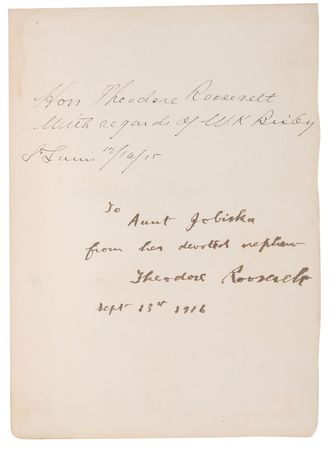 Hon Theodore Roosevelt
With regards of WK Bixby
St Louis 12/10/15
To
Aunt Jobiska
from her devoted nephew
Theodore Roosevelt
Sept 13th 1916